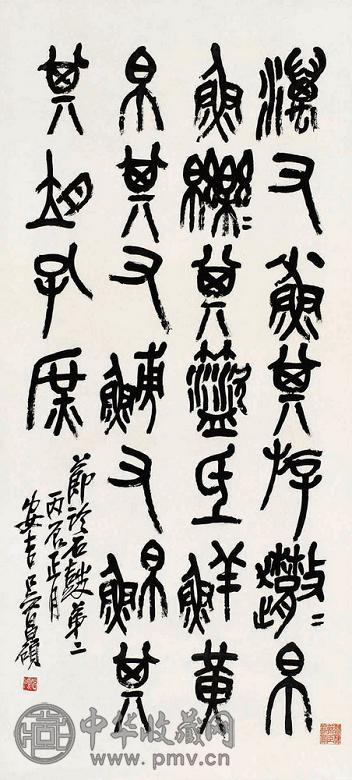 澫又小魚其斿帛
魚其氐鮮黃
帛其又又鮊其
其孔庶
節臨石鼓第二
丙辰正月
安吉吳昌碩
中华收藏网
www.pmv.cn